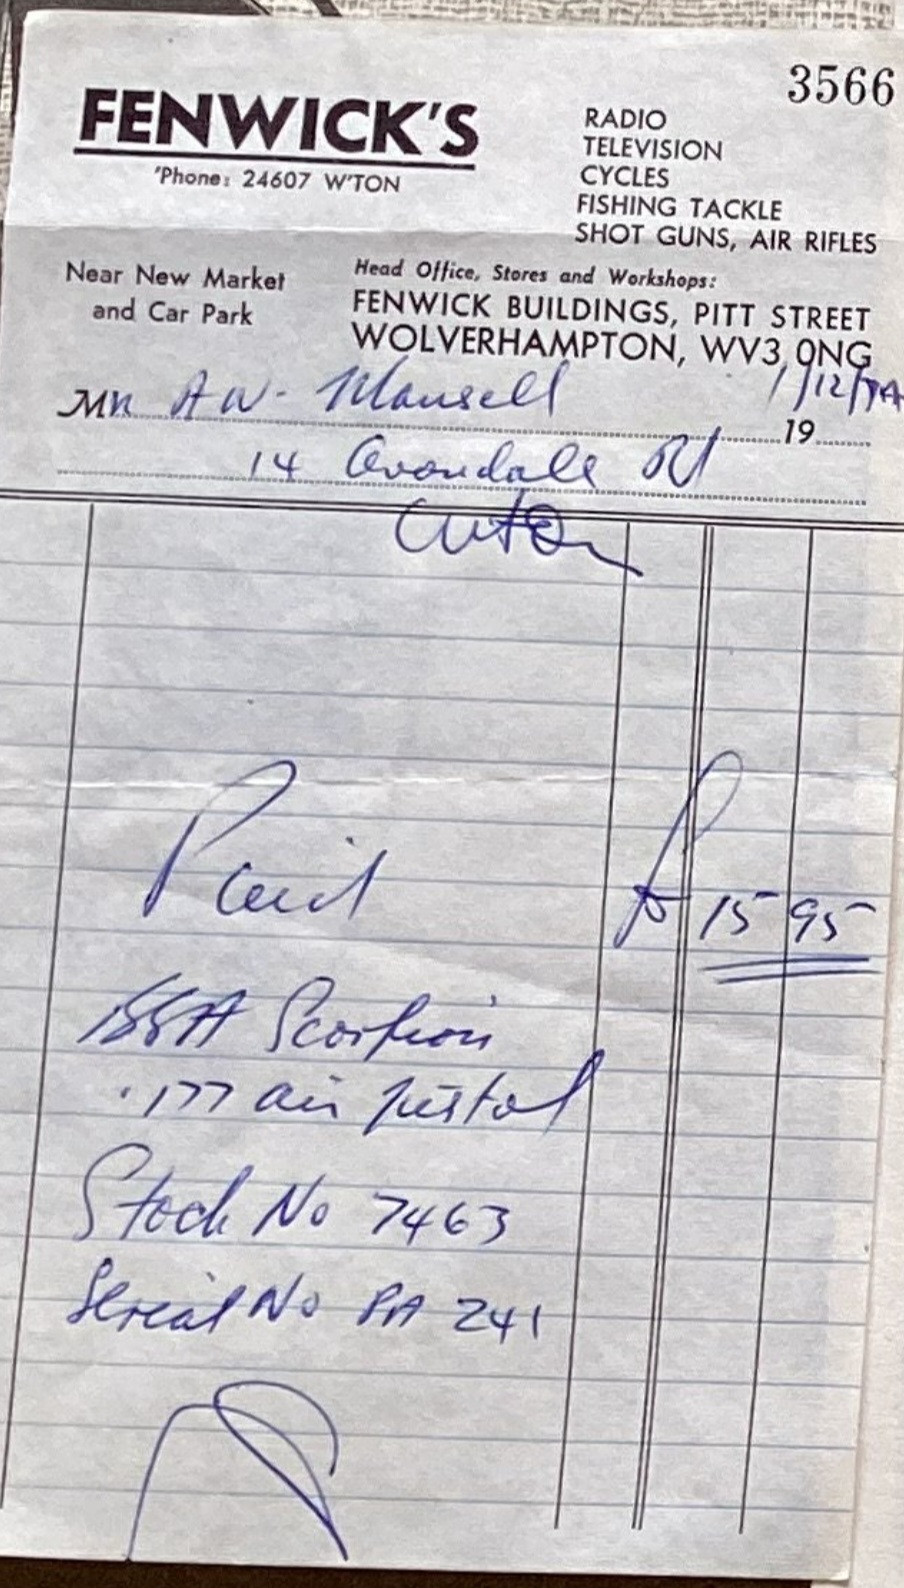 3566
FENWICK'S
'Phone: 24607 W'TON
RADIO
TELEVISION
CYCLES
FISHING TACKLE
SHOT GUNS, AIR RIFLES
Near New Market
and Car Park
Head Office, Stores and Workshops:
FENWICK BUILDINGS, PITT STREET
WOLVERHAMPTON, WV3 0NG
Mr A W. Mansell 1/12/ 19
14 Avondale Rd
W'ton
Paid £ 15 95
BSA Scorpion
.177 air pistol
Stock No 7463
Serial No PA 241